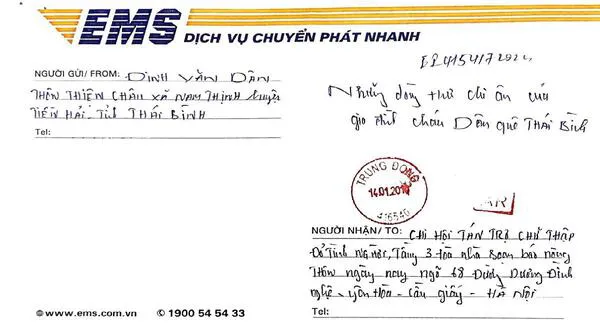 EMS DỊCH VỤ CHUYỂN PHÁT NHANH
NGƯỜI GỬI/ FROM: ĐINH VĂN DÂN
THÔN THIỆN CHÂU XÃ NAM THỊNH huyện
TIỀN HẢI. Tỉnh THÁI BÌNH
Tel:
Những dòng thư chi ân của
gia đình cháu Dân quê THÁI BÌNH
TRUNG ĐỒNG
14.01.20
416540
AR
NGƯỜI NHẬN/ TO: CHI HỘI TÁN TRỢ CHỮ THẬP
ĐỎ TÌNH NGƯỜI, Tầng 3 tòa nhà soạn báo nông
thôn ngày nay ngõ 68 Đường Dương Đình
nghệ - yên Hòa - Cầu giấy - HÀ NỘI
Tel:
www.ems.com.vn ✆ 1900 54 54 33